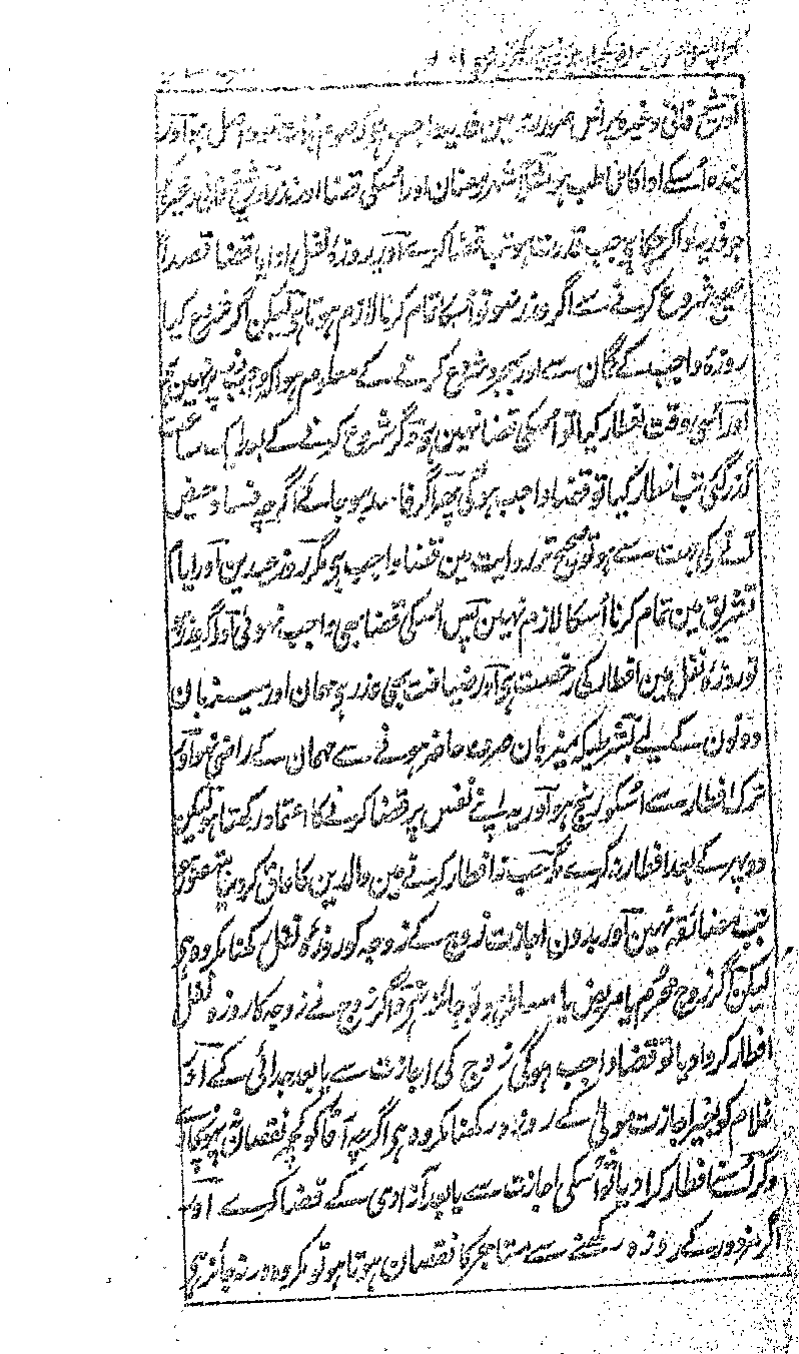 اور شیخ فانی وغیرہ پر اس صورت مین فدیہ واجب ہی کہ صوم بذات خود اصل ہو اور
بندہ اُسکے ادا کا مخاطب ہو شہر رمضان اور اُسکی قضا اور نذر شیخ فانی وغیرہ
جو فدیہ ادا کر چکا ہی جب قدرت ہو تب قضا کرے اور روزۂ نفل ادا یا قضا قصداً
صحیح شروع کرنے سے اگر عذر نہو تو اُسکا تمام کرنا لازم ہوتا ہی لیکن اگر شروع کیا
روزۂ واجب کے گمان سے اور بمجرد شروع کرنے کے معلوم ہوا کہ واجب نہین ہی
اور اُسی وقت افطار کیا تو اُسکی قضا نہین ہی اگر شروع کرنے کے بعد ایک ساعت
گذر گئی تب افطار کیا تو قضا واجب ہوگی پھر اگر فاسد ہو جائے اگرچہ فساد حیض
آنے کی جہت سے ہو تو صحیح تر روایت مین قضا واجب ہی مگر روز عیدین اور ایام
تشریق مین تمام کرنا اُسکا لازم نہین پس اُسکی قضا بھی واجب نہوئی اور اگر عذر ہو
تو روزۂ نفل مین افطار کی رخصت ہی اور ضیافت بھی عذر ہی مہمان اور میزبان
دونون کے لیے بشرطیکہ میزبان صرف حاضر ہونے سے مہمان کے راضی نہو اور
ترک افطار سے اُسکو رنج ہو اور یہ اپنے نفس پر قضا کرنے کا اعتماد رکھتا ہو لیکن
دوپہر کے بعد افطار نہ کرے مگر جب نہ افطار کرنے مین والدین کا عاق کر دینا متصور ہو
تب مضائقہ نہین اور بدون اجازت زوج کے زوجہ کو روزۂ نفل رکھنا مکروہ ہی
لیکن اگر زوج محرم یا مریض یا مسافر ہو تو جائز ہی اور اگر زوج نے زوجہ کا روزہ نفل
افطار کروا دیا تو قضا واجب ہوگی زوج کی اجازت سے یا بعد جدائی کے اور
غلام کو بغیر اجازت مولیٰ کے روزہ رکھنا مکروہ ہی اگرچہ آقا کو کچھ نقصان نہ پہونچے اور
اگر اُسنے افطار کرا دیا تو اُسکی اجازت سے یا بعد آزادی کے قضا کرے اور
اگر مزدور کے روزہ رکھنے سے مستاجر کا نقصان ہوتا ہو تو مکروہ ورنہ جائز ہی